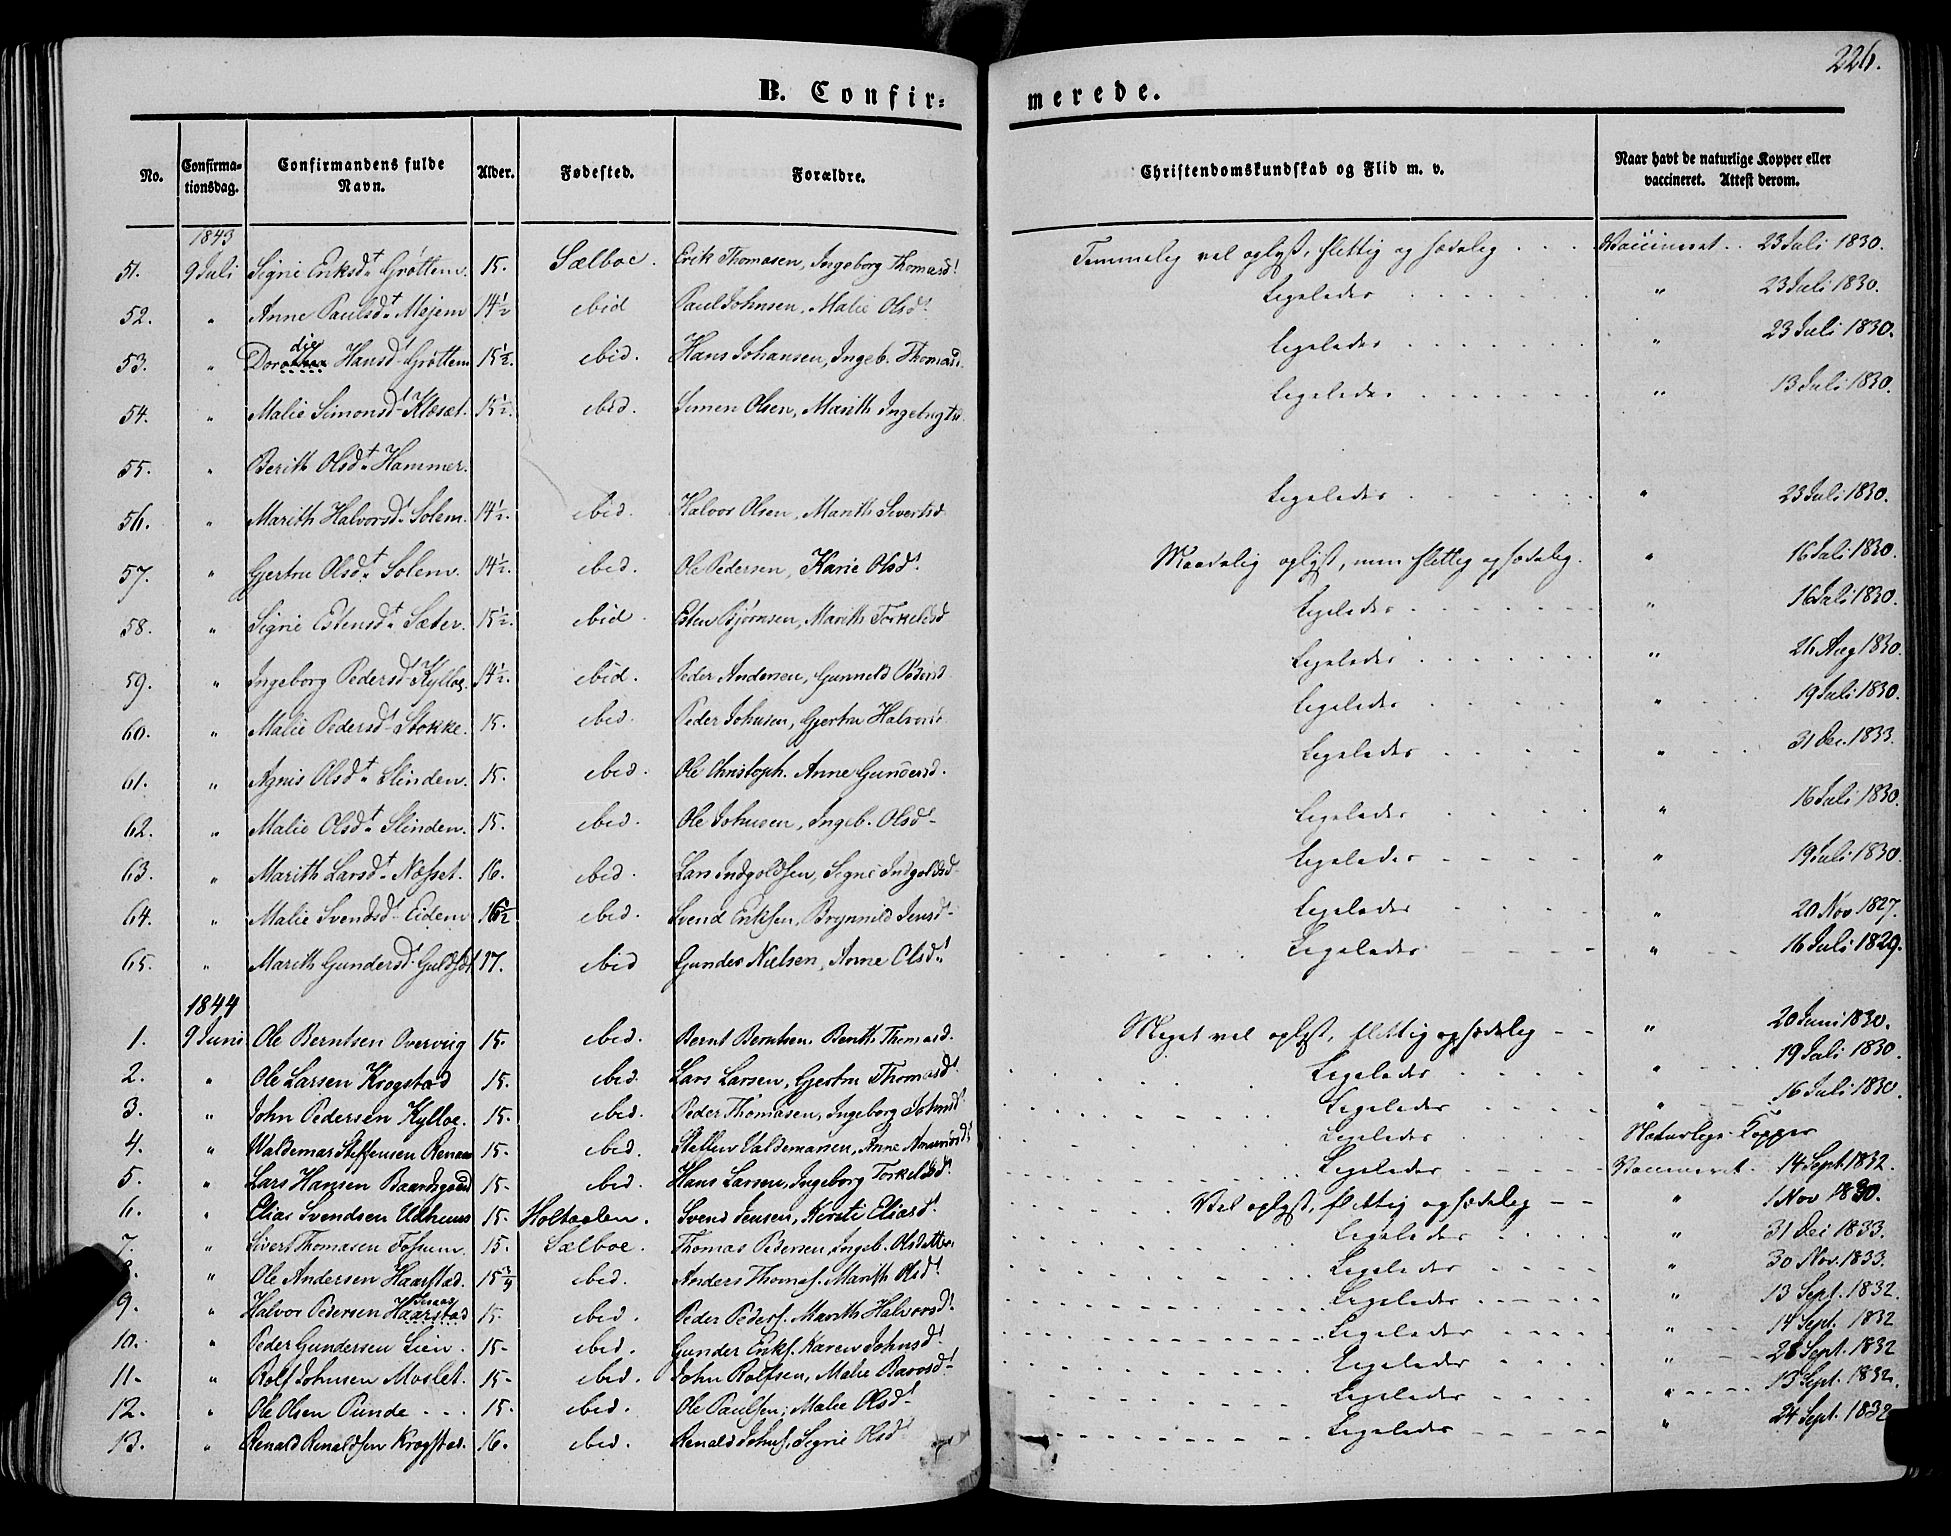 226.
B. Confir=merede.
No. Confirma=tionsdag. Confirmandens fulde Navn. Alder. Fødested. Forældre. Christendomskundskab og Flid m. v. Naar havt de naturlige Kopper eller vaccineret. Attest derom.
1843
51. 9 Juli Signe Eriksdt Grøttem 15. Sælboe. Erik Thomasen, Ingeborg Thomasd. Temmelig vel oplyst, flittig og sædelig Vaccineret 23 Juli 1830.
52. " Anne Paulsdt Mojem 14½ ibid Paul Johnsen, Malie Olsd. Ligeledes " 23 Juli 1830.
53. " Dorothea die Hansdt Grøttem 15½. ibid. Hans Johansen, Ingeb. Thomasd. Ligeledes " 23 Juli 1830.
54. " Malie Simonsdt Klæset. 15½. ibid. Simen Olsen, Marith Ingebrigtsd. Ligeledes " 13 Juli 1830.
55. " Berith Olsdt Hammer.
56. " Marith Halvorsdt Solem. 14½. ibid. Halvor Olsen, Marith Sivertsd. Ligeledes " 23 Juli 1830.
57. " Gjertru Olsdt Solem. 14½. ibid. Ole Pedersen, Karie Olsd. Maadelig oplyst, men flittig og sædelig. " 16 Juli 1830.
58. " Signe Estensdt Sæter. 15½. ibid. Esten Bjørnsen, Marith Torkelsd Ligeledes " 16 Juli 1830.
59. " Ingeborg Pedersdt Kylloe. 14½. ibid. Peder Andersen, Gunneld Pedersd Ligeledes " 26 Aug 1830.
60. " Malie Pedersdt Stokke. 15. ibid. Peder Johnsen, Gjertru Halvorsd Ligeledes " 19 Juli 1830.
61. " Agnis Olsdt Slinden. 15. ibid. Ole Christoph. Anne Gundersd. Ligeledes " 31 Dec. 1833.
62. " Malie Olsdt Slinden. 15. ibid. Ole Johnsen, Ingeb. Olsd. Ligeledes " 16 Juli 1830.
63. " Marith Larsdt Næsset. 16. ibid. Lars Indgoldsen, Signe Indgoldsd. Ligeledes " 19 Juli 1830.
64. " Malie Svendsdt Eidem 16½ ibid. Svend Eriksen, Brynnild Jensd. Ligeledes " 20 Nov 1827.
65. " Marith Gundersdt Guldset 17. ibid Gunder Nielsen, Anne Olsd. Ligeledes " 16 Juli 1829.
1844
1. 9 Juni Ole Berntsen Overvig 15. ibid. Bernt Berntsen. Berith Thomasd. Meget vel oplyst, flittig og sædelig " 20 Juni 1830.
2. " Ole Larsen Krogstad 15. ibid. Lars Larsen, Gjertru Thomasd. Ligeledes " 19 Juli 1830.
3. " John Pedersen Kylloe. 15. ibid. Peder Thomasen, Ingeborg Johnsd. Ligeledes " 16 Juli 1830.
4. " Valdemar Steffensen Renaae 15. ibid. Steffen Valdemarsen, Anne Ligeledes Naturlige Kopper
5. " Lars Hansen Baardsgaard 15. ibid. Hans Larsen, Ingeborg Torkelsd. Ligeledes Vaccineret. 14 Sept 1832.
6. " Elias Svendsen Udhuus 15. Holtaalen. Svend Jensen, Kirsti Eliasd. Vel oplyst, flittig og sædelig " 1 Nov 1830.
7. " Sivert Thomasen Fossum. 15. Sælboe. Thomas Pedersen, Ingeb. Olsdatter Ligeledes " 31 Dec 1833.
8. " Ole Andersen Haarstad. 15¾ ibid. Anders Thomas. Marith Olsd. Ligeledes " 30 Nov. 1833.
9. " Halvor Pedersen Haarstad 15. ibid. Peder Peders. Marith Halvorsd. Ligeledes " 13 Sept. 1832.
10. " Peder Gundersen Lien. 15. ibid. Gunder Eriks. Karen Johnsd. Ligeledes " 14 Sept. 1832
11. " Rolf Johnsen Moslet. 15. ibid. John Rolfsen, Malie Barosd. Ligeledes " 28 Sept. 1832
12. " Ole Olsen Punde 15. ibid. Ole Paulsen, Malie Olsd. Ligeledes " 13 Sept. 1832.
13. " Renald Renaldsen Krogstad. 16. ibid. Renald Johns. Signe Olsd Ligeledes " 24 Sept. 1832